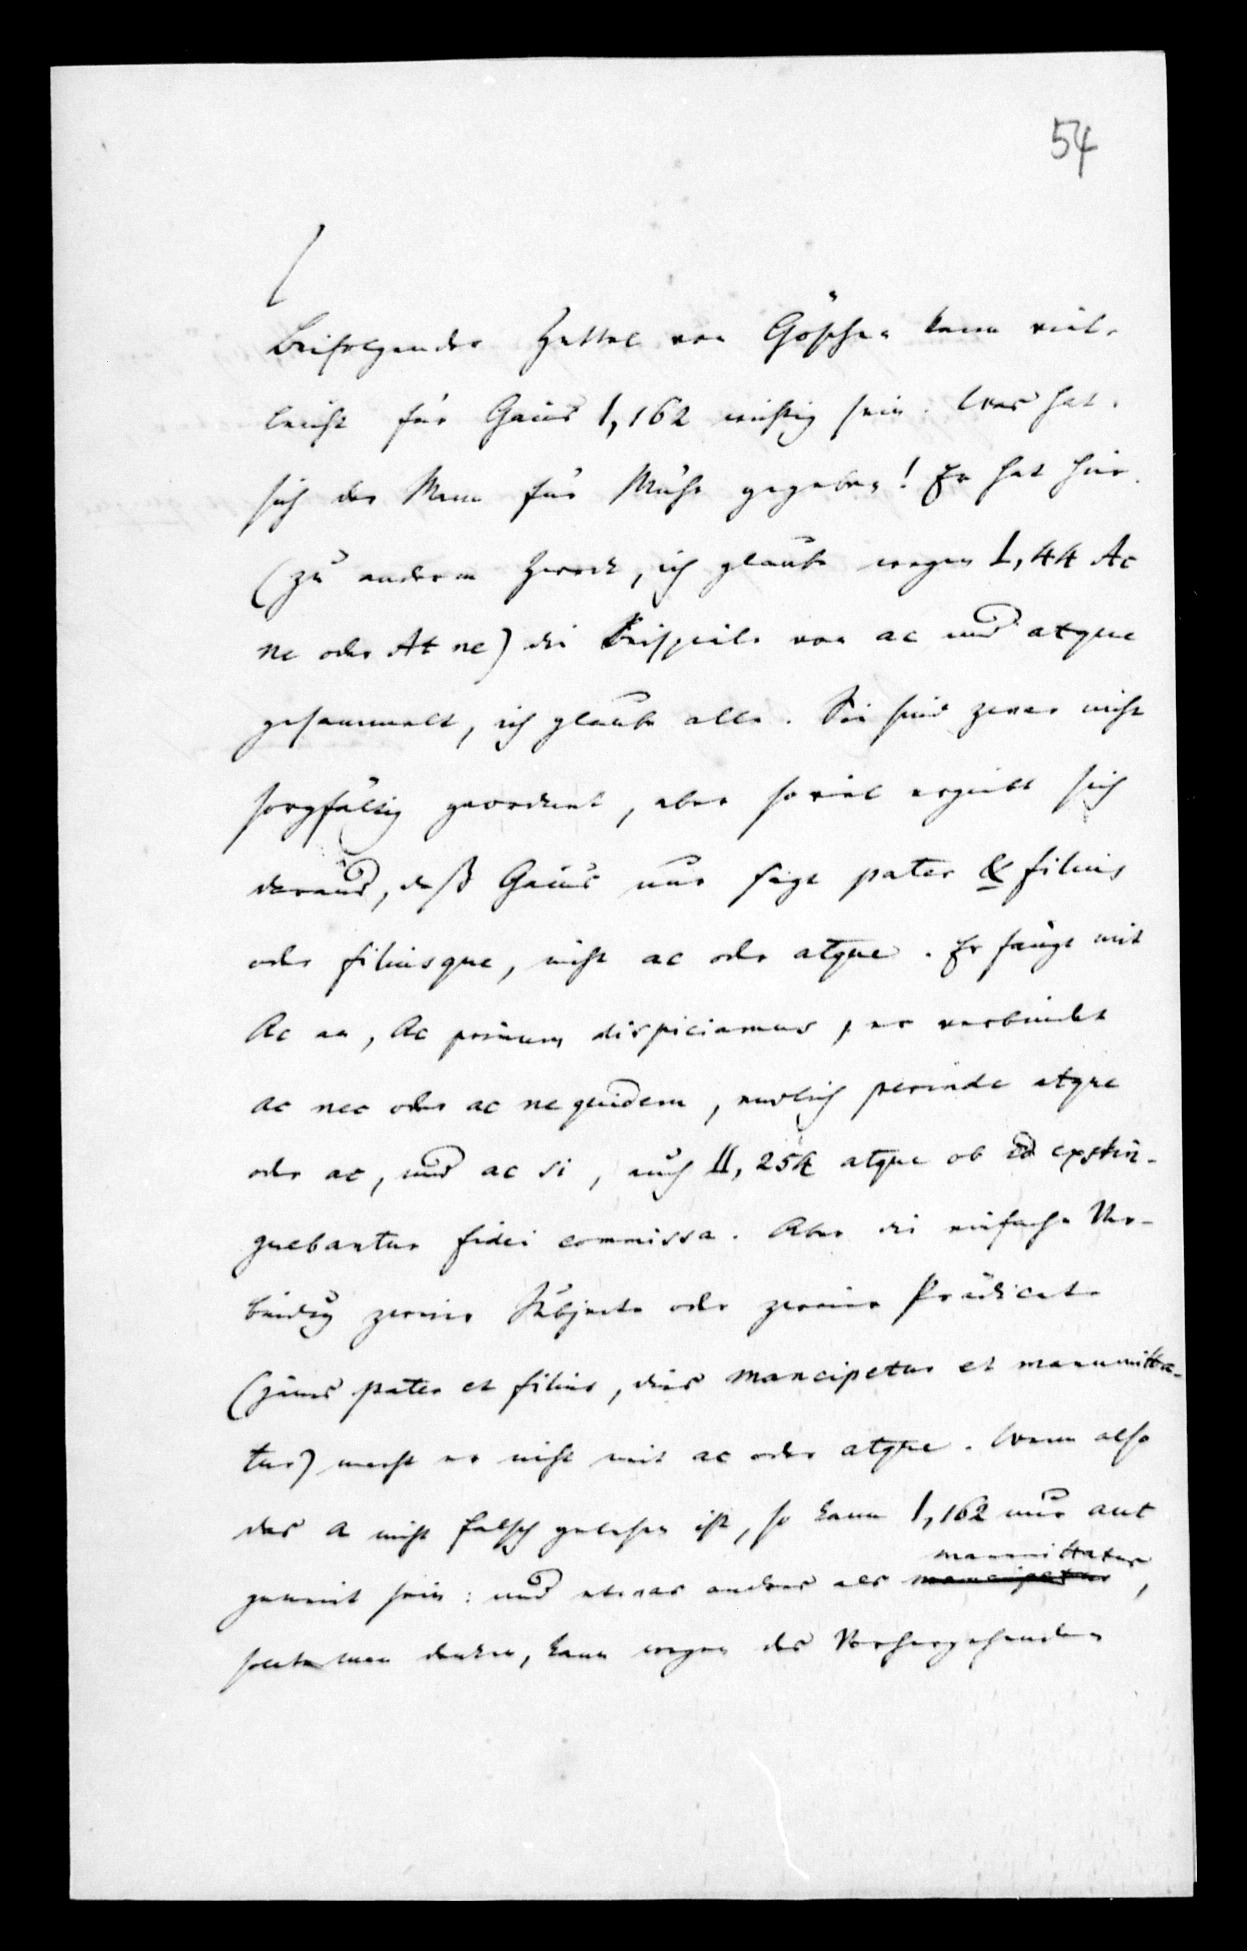 54
Beifolgender Zettel von Göschen kann viel-
leicht für Gaius I, 162 wichtig sein. Was hat
sich der Mann für Mühe gegeben! Er hat hier
(zu anderem Zweck, ich glaube wegen I, 44 Ac
ne oder At ne) die Beispiele von ac und atque
gesammelt, ich glaube alle. Sie sind zwar nicht
sorgfältig geordnet, aber so viel ergiebt sich
daraus, daß Gaius nur sagt pater & filius
oder filiusque, nicht ac oder atque. Er fängt mit
Ac an, Ac prius dispiciamus, er verbindet
ac nec oder ac ne quidem, endlich perinde atque
oder ac, und ac si, auch II, 254 atque ob id exstin-
guebantur fidei commissa. Aber die einfache Ver-
bindung zweier Subjecte oder zweier Prädicate
(jenes pater et filius, dies mancipetur et manumitta-
tur) macht er nicht mit ac oder atque. Wenn also
das a nicht falsch gelesen ist, so kann I, 162 nur aut
gemeint sein: und etwas anders als mancipetur manumittatur,
sollte man denken, kann wegen des Vorhergehenden